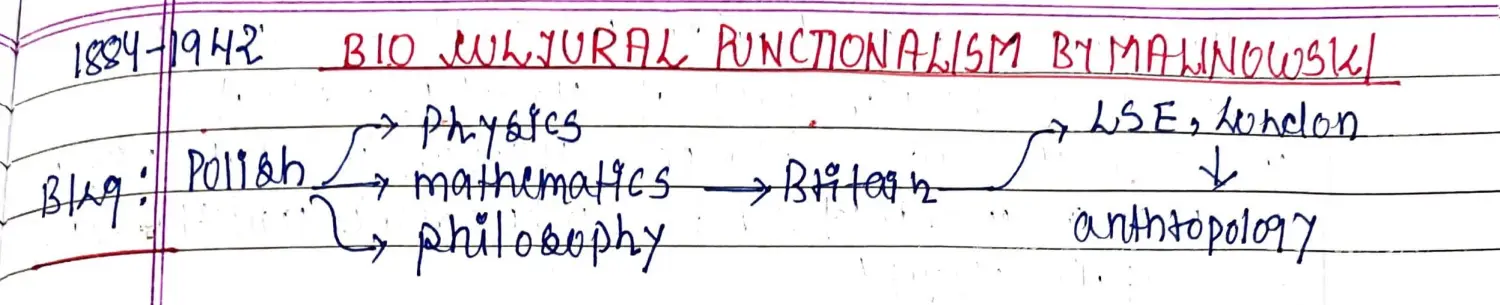 1884-1942 BIO CULTURAL FUNCTIONALISM BY MALINOWSKI
→ Physics → LSE, London
Bkg: Polish → mathematics → Britain ↓
→ philosophy anthropology